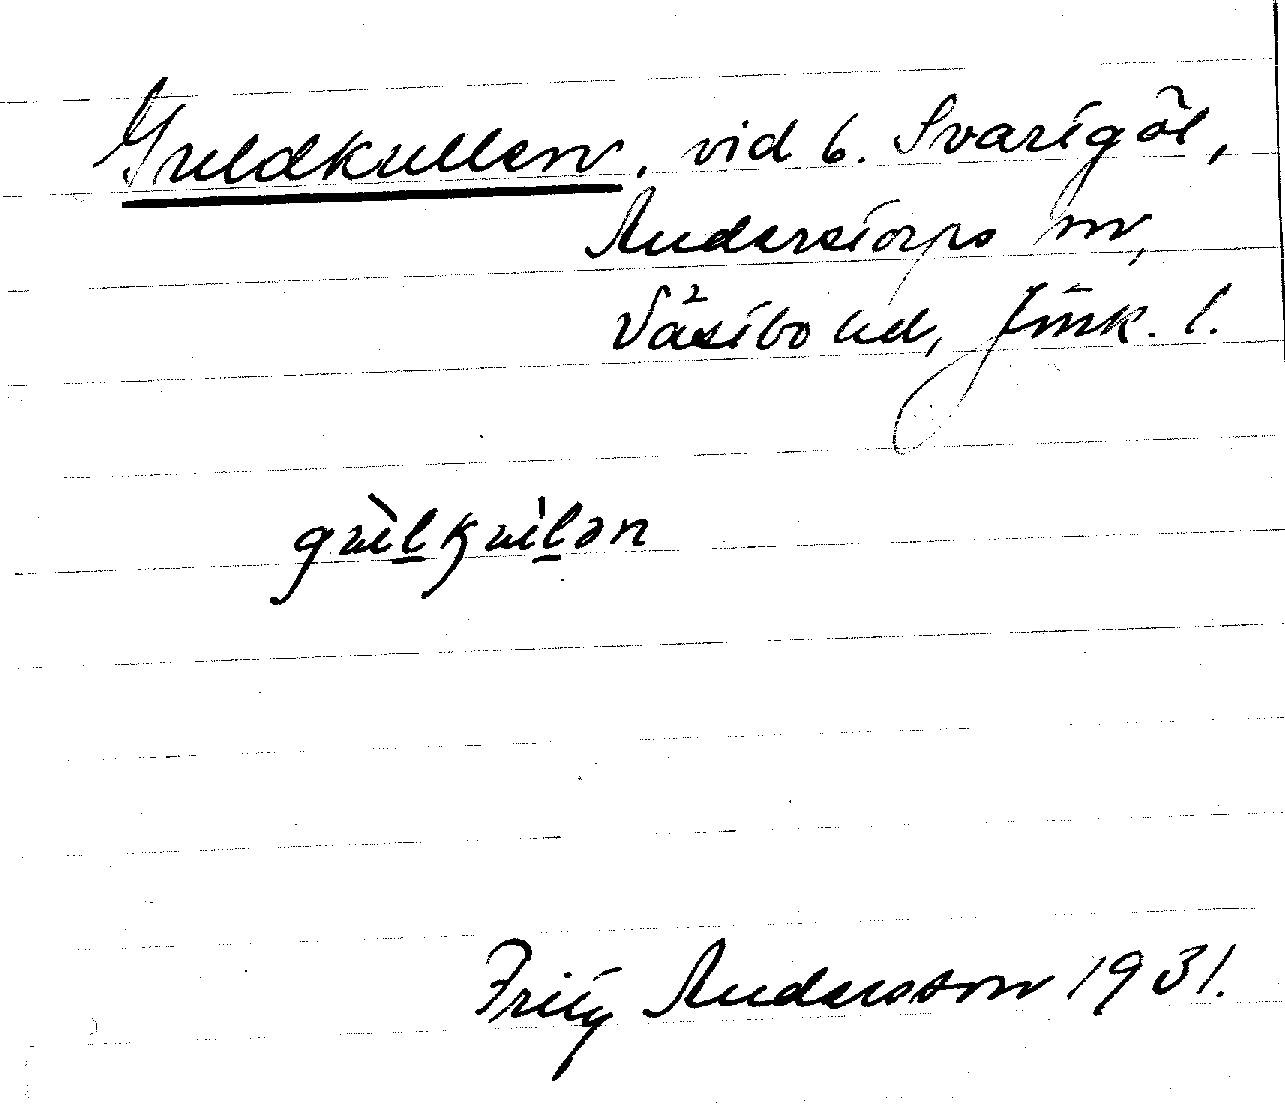 Guldkullen, vid b. Svartgöl,
Anderstorps sn,
Västbo hd, Jönk. l.
gùlkúlən
Fritz Andersson 1931.